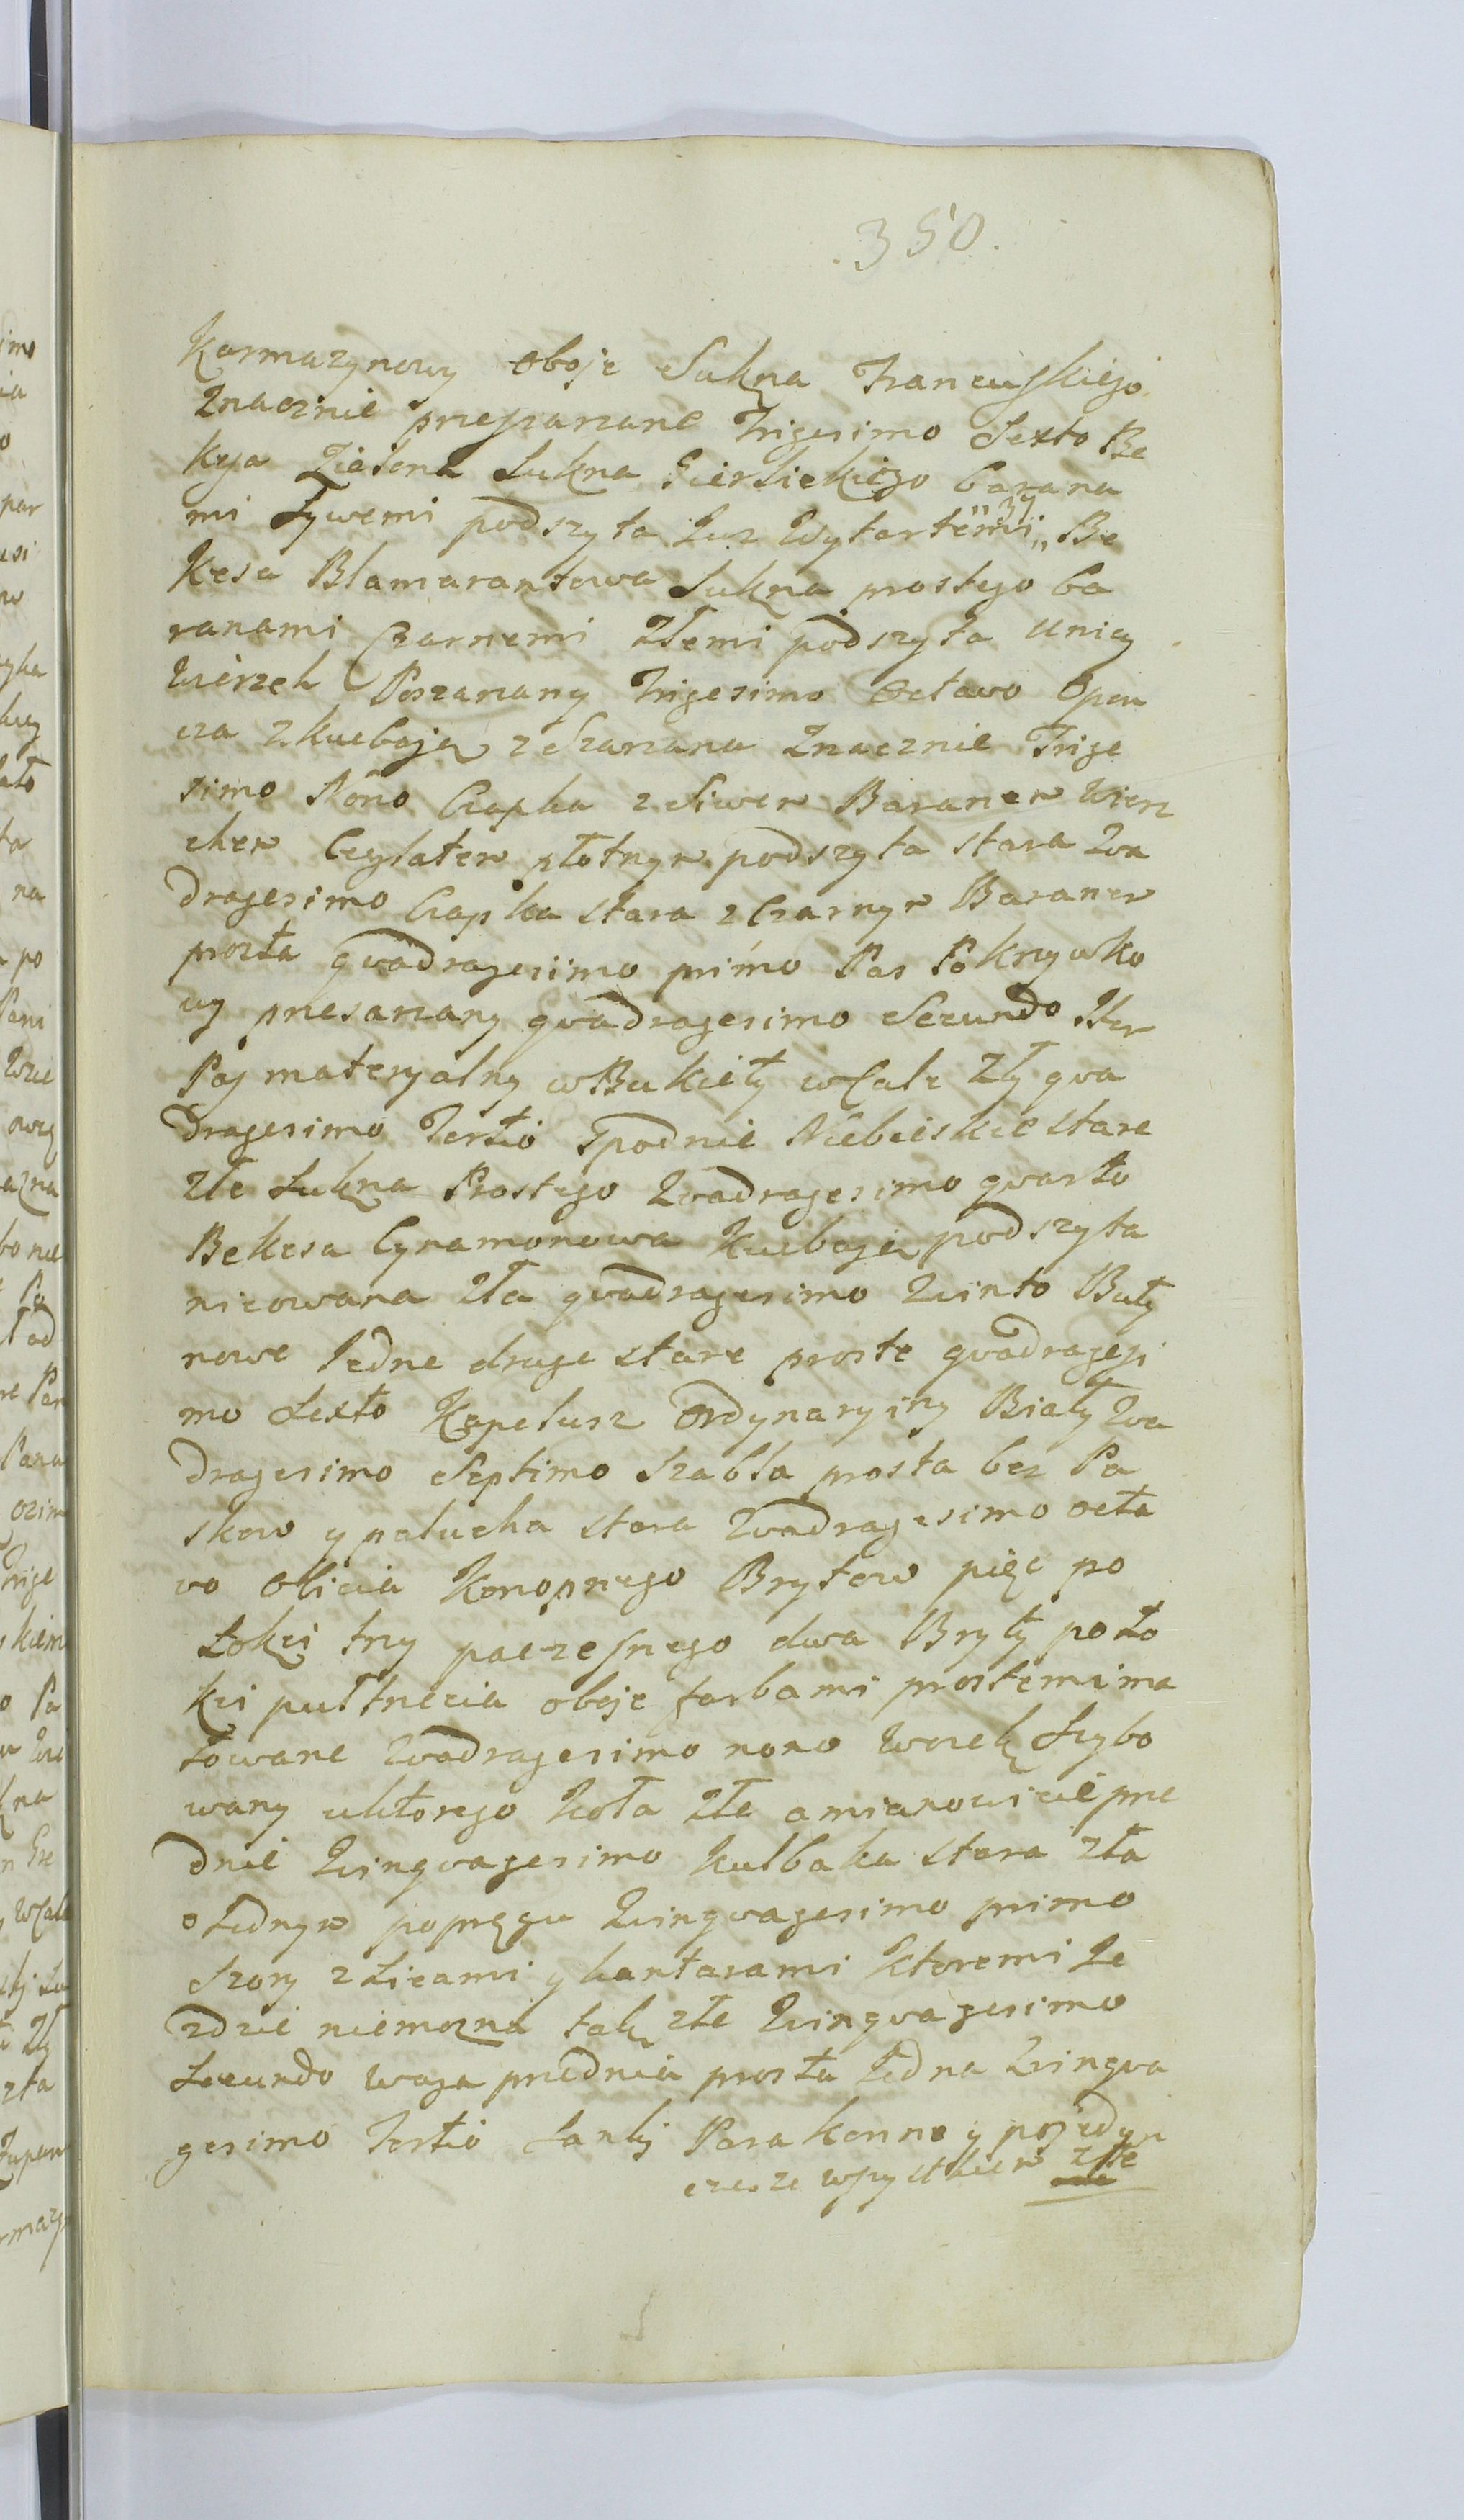 .350.
Karmazynowy oboje Sukna Francuskiego
Znacznie przeszarzane Trigesimo Sexto Be
kesza Zielona Sukna barana
mi Sywemi podszyta Juz Wytartemi "37" Be
kesa Blamarantowa Sukna prostego ba
ranami Czarnemi Złemi podszyta y
Wierzch Poszarzany Trigesimo Octavo Opon
cza z kuebają zeSzarzana Znacznie Trige
simo Nono Czapka z Siwem Baranem Wierz
chem Ceglatem płotnem podszyta stara Qva
dragesimo Czapka stara z Czarnym Baranem
prosta qvadragesimo primo Pas Pokrzywko
wy przesarzany qvadragesimo Secundo Item
Pas materyalny w Bukiety wCale Zły qva
dragesimo Tertio Spodnie Niebieskie stare
złe Sukna Prostego Qvadragesimo qvarto
Bekesa Cynamonowa Kuebają podszyta
nicowana zła qvadragesimo Qvinto Buty
nowe Jedne druge stare proste qvadragesi
mo Sexto Kapelusz Ordynaryiny Biały Qva
dragesimo Septimo Szabla prosta bez Pa
skow y palucha stara Qvadragesimo octa
vo Obicia Konopnego Brytow pięc po
Łokci trzy paczesnego dwa Bryty po ło
kci pułtrzecia oboje farbami prostemi ma
lowane Qvadragesimo nono Wozek Szybo
wany uktorego koła złe a mianowicie prze
dnie Qvinqvagesimo Kulbaka stara zła
o Jednym popręgu Qvinqvagesimo primo
Szory z Licami y kantarami Ktoremi Je
zdzić niemozna tak złe Qvinqvagesimo
Secundo Waga przednia prosta Jedna Qvinqva
gesimo Tertio Sanki Parakonne y pojedyn
cze ze wszystkiem złe